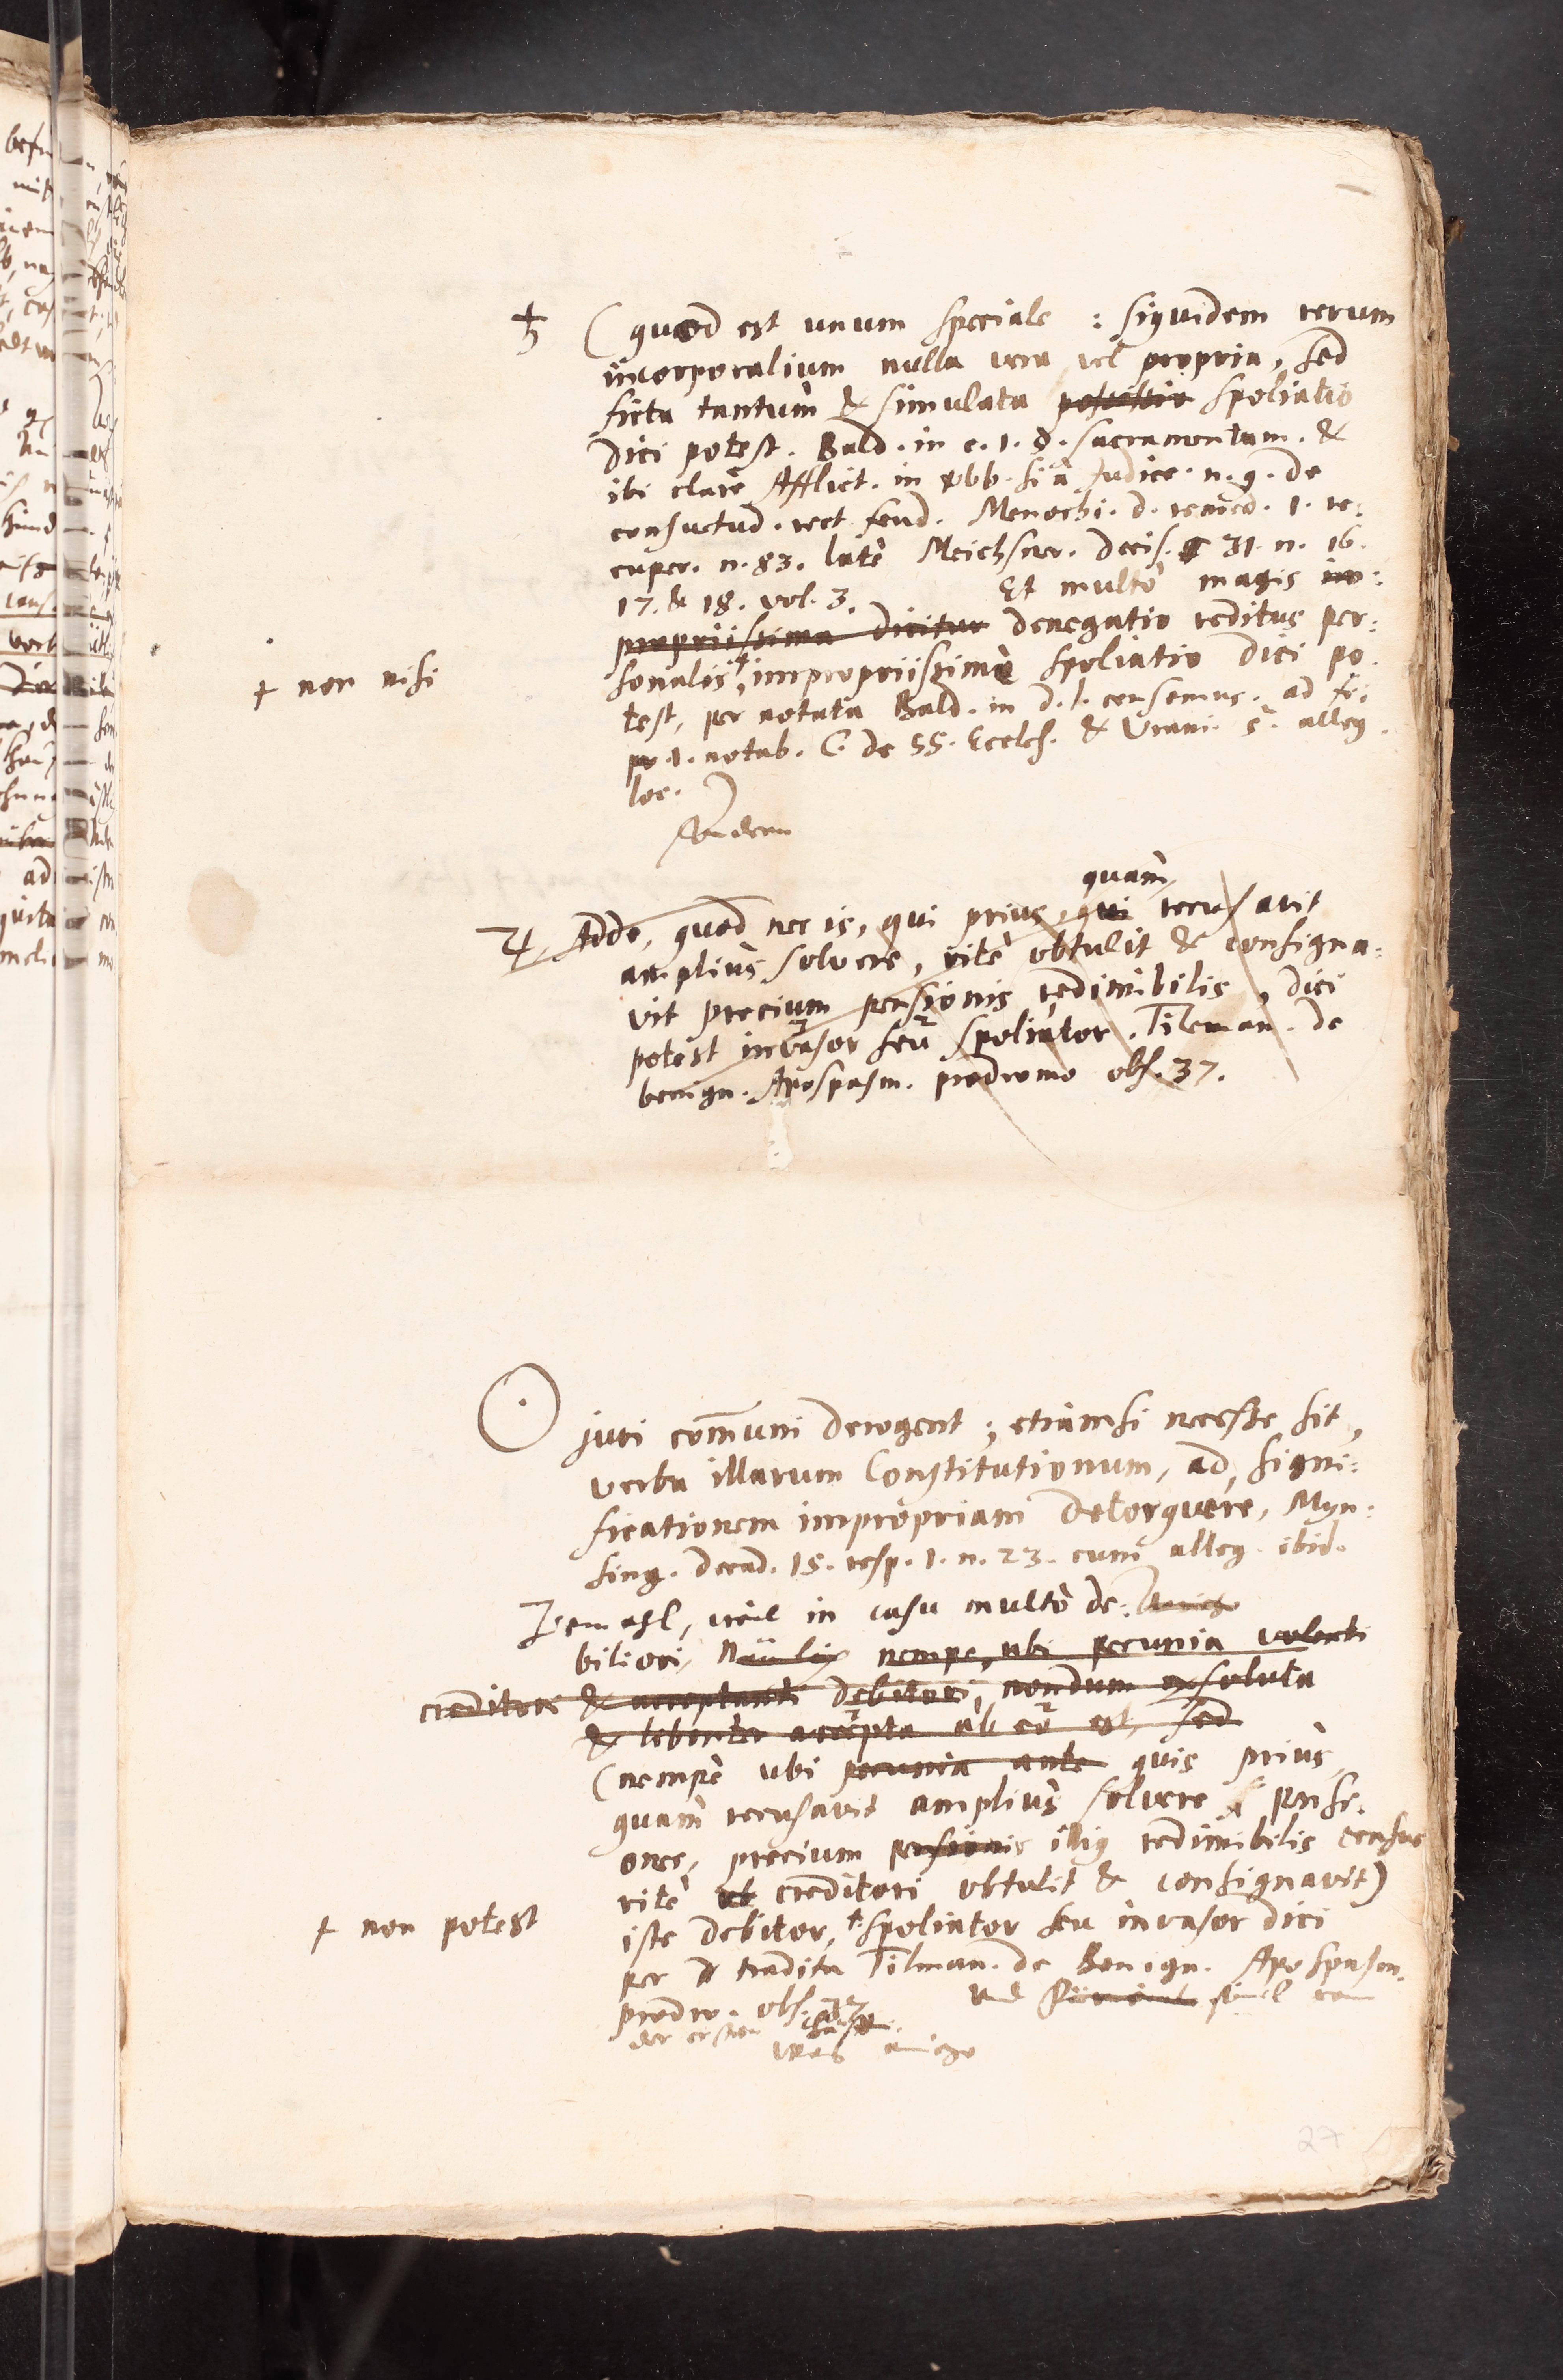 ♄ (quod est unum speciale : siquidem rerum
incorporalium nulla vera vel propria, sed
ficta tantum & simulata possessio spoliatio
dici potest. Bald. in c. 1. §. sacramentum. &
ibi clarè Afflict. in vbb. si à Judice. n. 9. de
consuetud. rect. feud. Menochi. d. remed. 1. re:
cuper. n. 83. latè Meichsner. decis. 31. n. 16.
17. & 18. vol. 3. Et multò magis im:
propriissima dicitur denegatio reditus per:
sonalis, + impropriissimè spoliatio dici po
+ non nisi
test, per notata Bald. in d. l. censemus. ad fi:
1. notab. C. de SS. Eccles. & Vrani. s. alleg.
loc. )
Sondern
♃ Adde, quod nec is, qui prius, qui quàm recusavit
amplius solvere, ritè obtulit & consigna:
vit precium pensionis redimibilis, dici
potest invasor seu spoliator. Tileman. de
benign. Apospasm. prodromo obs. 37.
☉ juri communi derogent ; etiamsi necesse sit,
verba illarum Constitutionum, ad signi:
ficationem impropriam detorquere, Myn:
sing. decad. 15. resp. 1. n. 23. cum alleg. ibid.
Zemahl, weil in casu multò de:
biliori, nempe, ubi pecunia volenti
creditori & acceptanti debitori, nondum exsoluta
& libenter accepta ab eo est, sed
(nempe ubi pecunia ante quis prius,
quàm recusavit amplius solvere pensi:
ones, precium pensionis redimibilis census
ritè ob creditori obtulit & consignavit)
iste debitor, + spoliator seu invasor dici
+ non potest
per tradita Tilman. de Benign. Apospasm.
prodro. obs. 37. und
der ersten
was
27